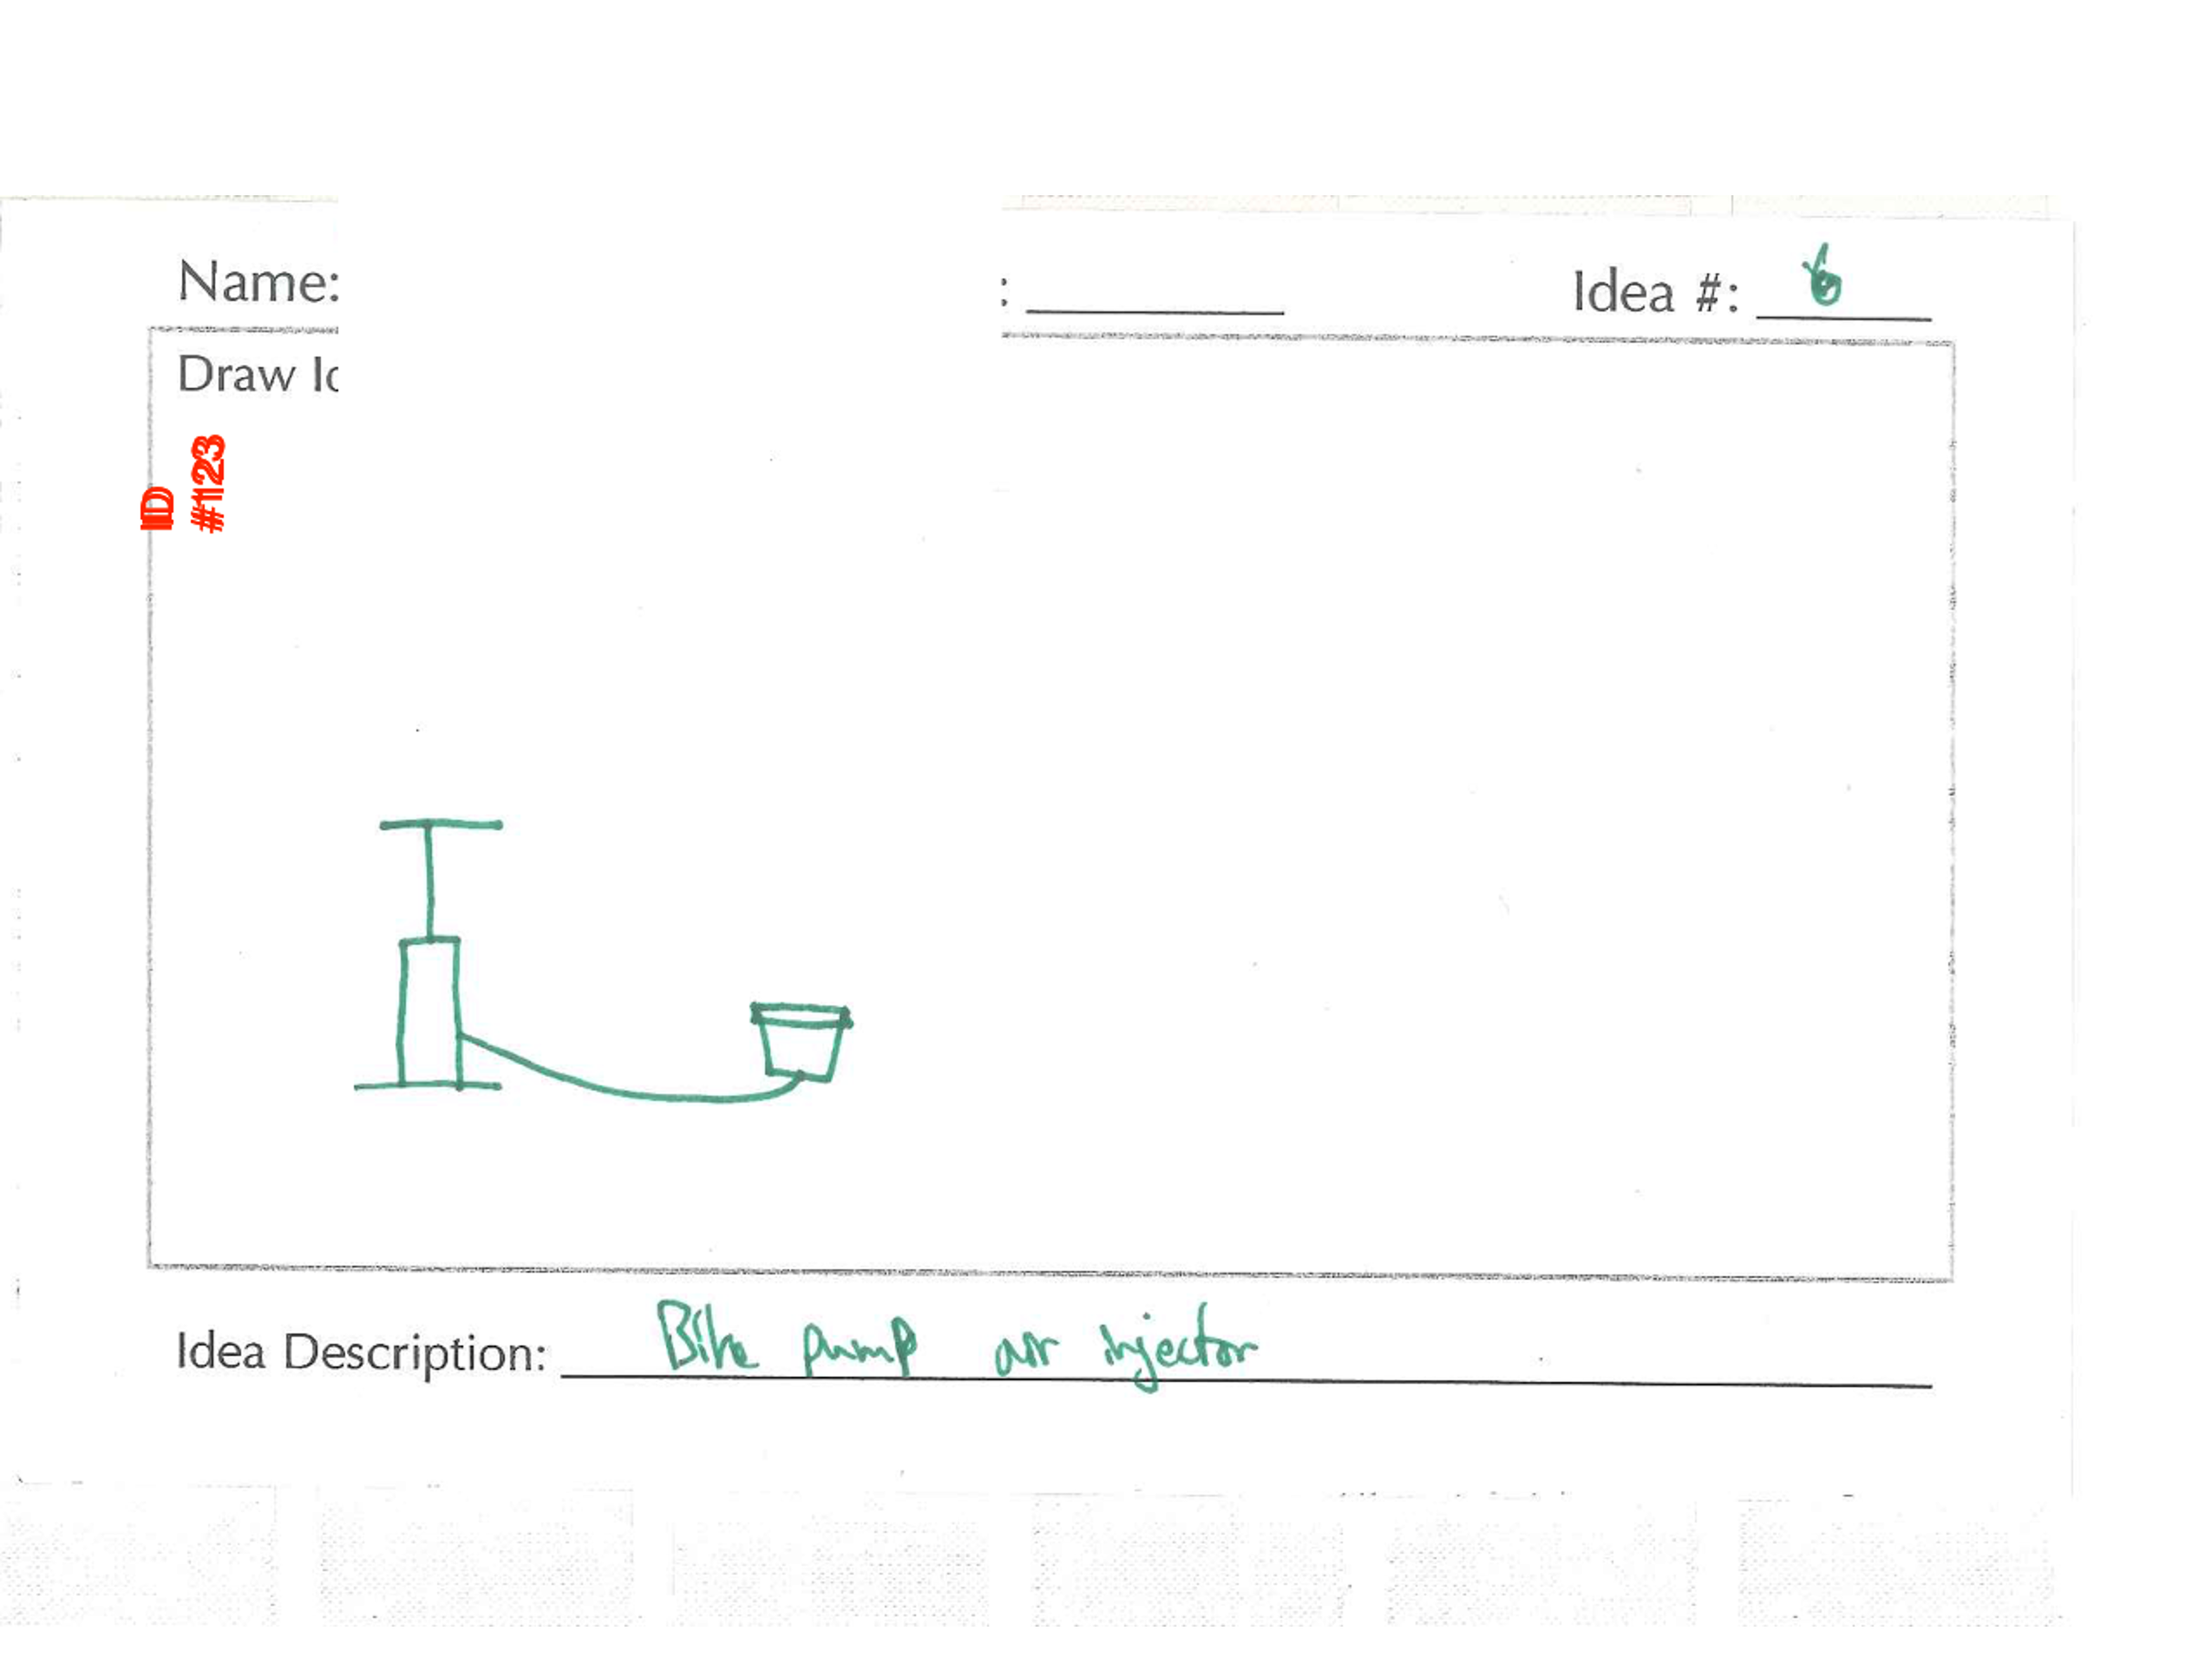 Name:
: Idea #: 6
Draw Id
ID
#1123
Idea Description: Bike pump air injector